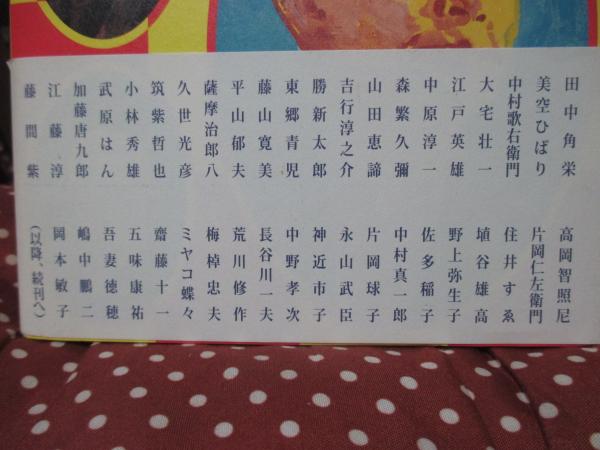 田中角栄
美空ひばり
中村歌右衛門
大宅壮一
江戸英雄
中原淳一
森繁久彌
山田恵諦
吉行淳之介
勝新太郎
東郷青児
藤山寛美
平山郁夫
薩摩治郎八
久世光彦
筑紫哲也
小林秀雄
武原はん
加藤唐九郎
江藤淳
藤間紫
高岡智照尼
片岡仁左衛門
住井すゑ
埴谷雄高
野上弥生子
佐多稲子
中村真一郎
片岡球子
永山武臣
神近市子
中野孝次
長谷川一夫
荒川修作
梅棹忠夫
ミヤコ蝶々
齋藤十一
五味康祐
吾妻徳穂
嶋中鵬二
岡本敏子
(以降、続刊へ)